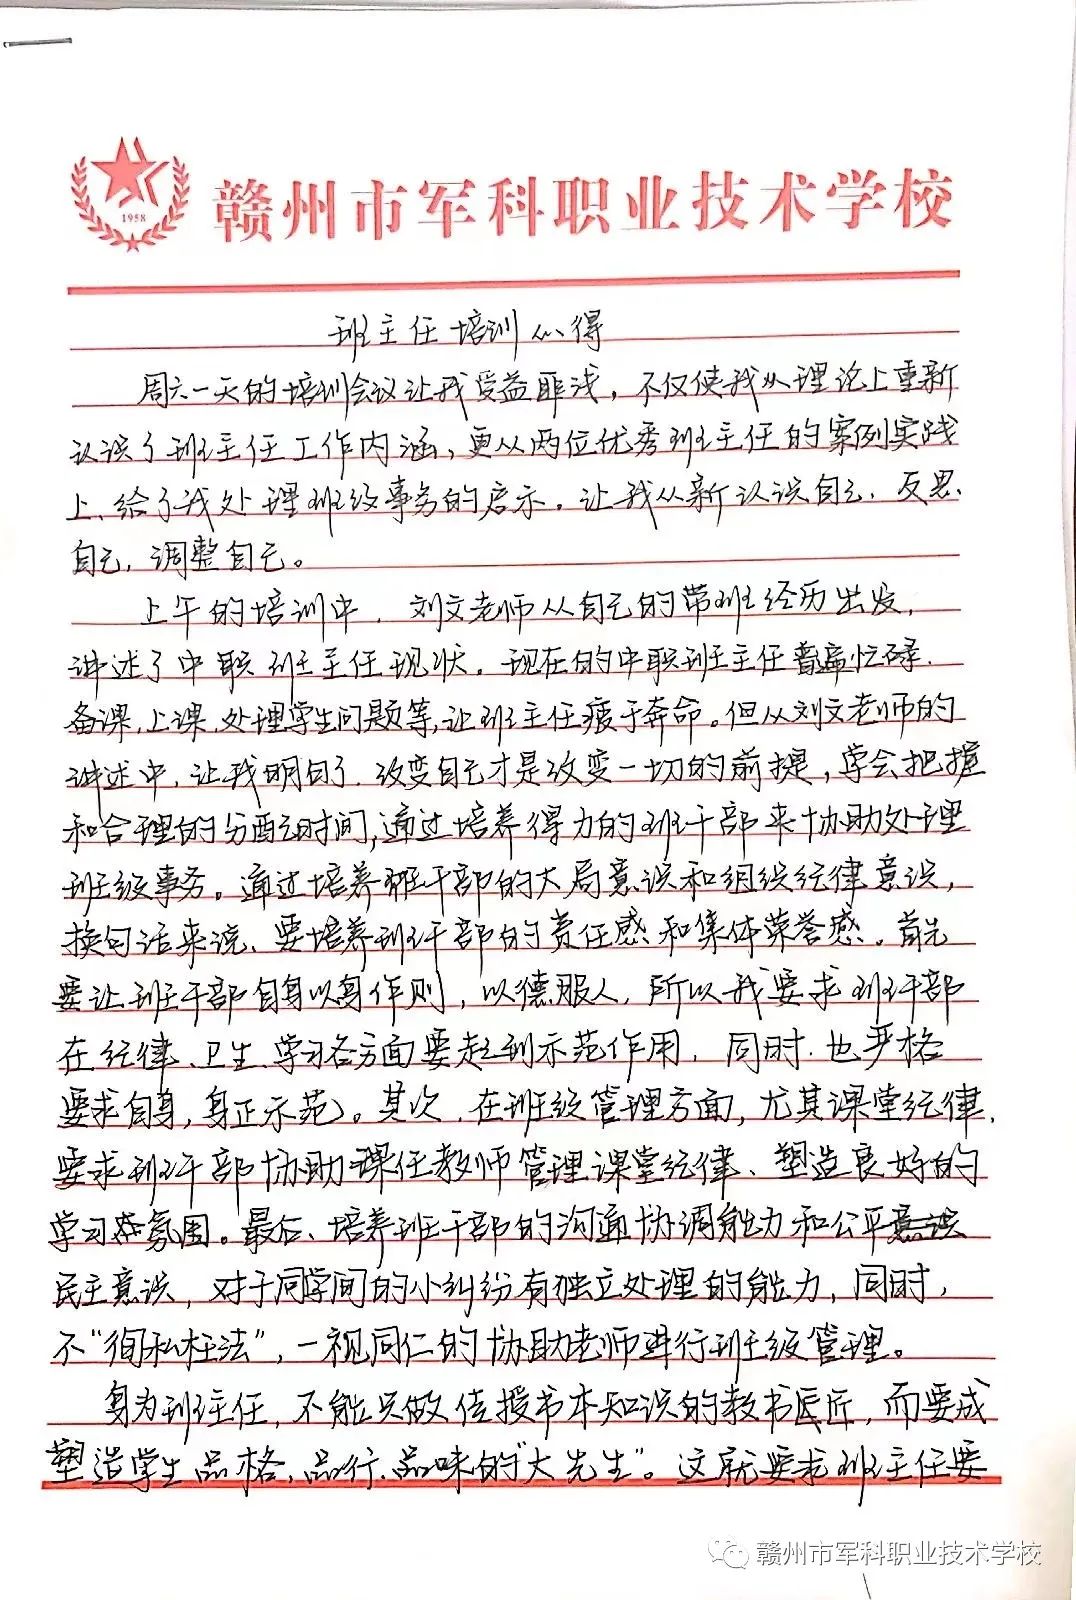 1958
赣州市军科职业技术学校
班主任培训心得
周六一天的培训会议让我受益匪浅，不仅使我从理论上重新
认识了班主任工作内涵，更从两位优秀班主任的案例实践
上、给了我处理班级事务的启示。让我从新认识自己、反思、
自己，调整自己。
上午的培训中，刘文老师从自己的带班经历出发，
讲述了中职班主任现状。现在的中职班主任普遍忙碌、
备课、上课、处理学生问题等，让班主任疲于奔命。但从刘文老师的
讲述中，让我明白了，改变自己才是改变一切的前提，学会把握
和合理的分配时间，通过培养得力的班干部来协助处理
班级事务。通过培养班干部的大局意识和组织纪律意识，
换句话来说、要培养班干部的责任感和集体荣誉感。首先
要让班干部自身以身作则，以德服人，所以我要求班干部
在纪律、卫生、学习各方面要起到示范作用，同时，也严格
要求自身，身正示范。其次，在班级管理方面，尤其课堂纪律，
要求班干部协助课任教师管理课堂纪律、塑造良好的
学习氛围。最后、培养班干部的沟通协调能力和公平意识
民主意识，对于同学间的小纠纷有独立处理的能力，同时，
不“徇私枉法”，一视同仁的协助老师进行班级管理。
身为班主任，不能只做传授书本知识的教书匠，而要成
塑造学生品格、品行、品味的“大先生”。这就要求班主任要
赣州市军科职业技术学校